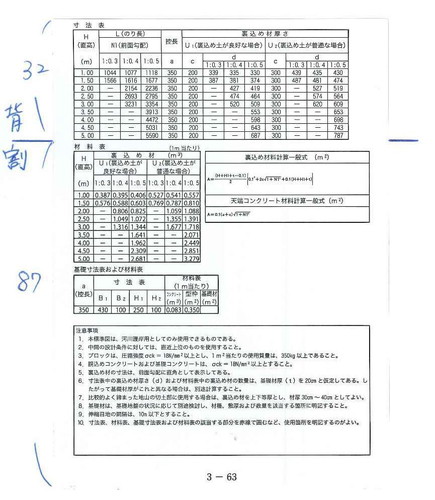 寸 法 表
H (直高) L(のり長) 控長 裏込め材厚さ
N1(前面勾配) U1(裏込め土が良好な場合) U2(裏込め土が普通な場合)
a c d c d
(m) 1:0.3 1:0.4 1:0.5 1:0.3 1:0.4 1:0.5 1:0.3 1:0.4 1:0.5
1.00 1044 1077 1118 350 200 339 335 330 300 439 435 430
1.50 1566 1616 1677 350 200 387 381 374 300 487 481 474
2.00 − 2154 2236 350 200 − 427 419 300 − 527 519
2.50 − 2693 2795 350 200 − 474 464 300 − 574 564
3.00 − 3231 3354 350 200 − 520 509 300 − 620 609
3.50 − − 3913 350 200 − − 553 300 − − 653
4.00 − − 4472 350 200 − − 598 300 − − 698
4.50 − − 5031 350 200 − − 643 300 − − 743
5.00 − − 5590 350 200 − − 687 300 − − 787
32
背
割
87
材 料 表 (1m当たり)
H (直高) 裏 込 め 材 (m³)
U1(裏込め土が良好な場合) U2(裏込め土が普通な場合)
(m) 1:0.3 1:0.4 1:0.5 1:0.3 1:0.4 1:0.5
1.00 0.387 0.395 0.406 0.527 0.541 0.557
1.50 0.576 0.588 0.603 0.769 0.787 0.810
2.00 − 0.806 0.825 − 1.059 1.088
2.50 − 1.049 1.072 − 1.355 1.391
3.00 − 1.316 1.344 − 1.677 1.718
3.50 − − 1.641 − − 2.071
4.00 − − 1.962 − − 2.449
4.50 − − 2.309 − − 2.851
5.00 − − 2.681 − − 3.279
裏込め材料計算一般式 (m³)
天端コンクリート材料計算一般式 (m³)
基礎寸法表および材料表
a (控長) 寸 法 表 材料表 (1m当たり)
B1 B2 H1 H2 コンクリート(m³) 型枠(m²) 基礎材(m²)
350 430 100 250 100 0.083 0.350
注意事項
1. 本標準図は、河川護岸用としてのみ使用できるものである。
2. 中間の設計条件に対しては、直近上位のものを使用すること。
3. ブロックは、圧縮強度 σck=18N/mm²以上とし、1m²当たりの使用質量は、350kg以上であること。
4. 胴込めコンクリートおよび基礎コンクリートは、σck=18N/mm²以上とすること。
5. 裏込め材の寸法は、前面勾配に直角として表示してある。
6. 寸法表中の裏込め材厚さ(d)および材料表中の裏込め材の数量は、基礎材厚(t)を20cmと仮定してある。し
たがって基礎材厚がこれと異なる場合は、別途計算すること。
7. 比較的よく締まった地山の切土部に使用する場合は、裏込め材を上下等厚とし、材厚30cm～40cmとしてよい。
8. 基礎材は、基礎地盤の状況に応じて別途検討し、材種、敷厚および数量を該当する箇所に明記すること。
9. 伸縮目地の間隔は、10m以下とすること。
10. 寸法表、材料表、基礎寸法表および材料表の該当する部分を赤線で囲むなど、使用箇所を明記するのがよい。
3 − 63